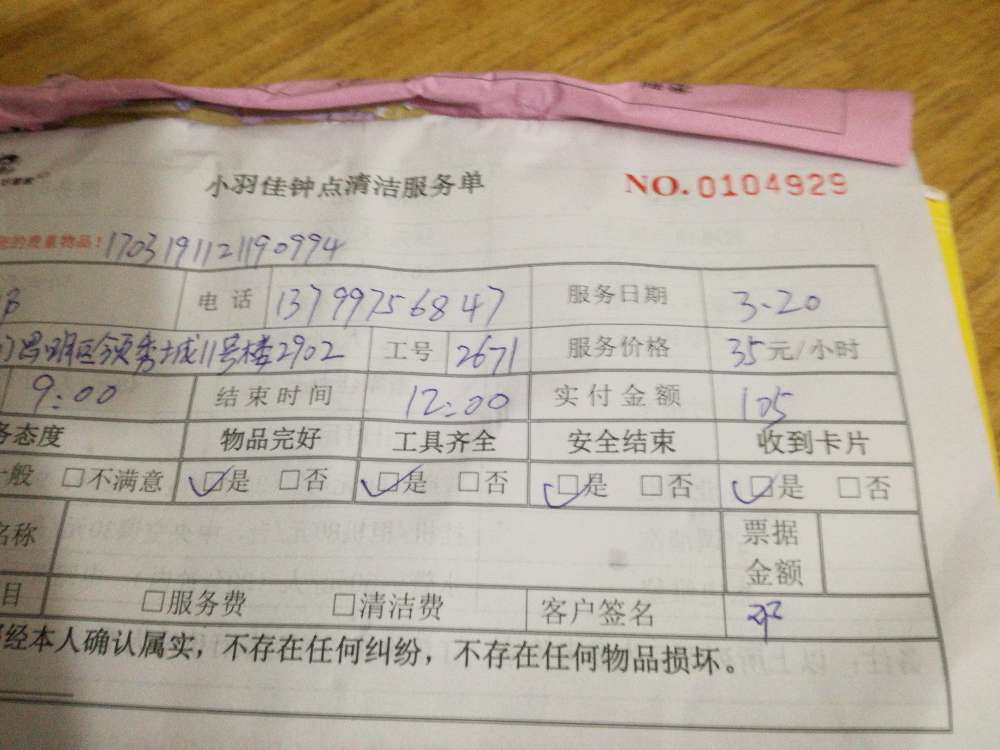 小羽佳钟点清洁服务单 NO. 0104929
您的贵重物品! 1703191121190994
电话 13799756847 服务日期 3.20
领秀城11号楼2902 工号 2671 服务价格 35元/小时
9:00 结束时间 12:00 实付金额 105
务态度 物品完好 工具齐全 安全结束 收到卡片
一般 □不满意 ☑是 □否 ☑是 □否 ☑是 □否 ☑是 □否
名称 票据金额
目 □服务费 □清洁费 客户签名
经本人确认属实,不存在任何纠纷,不存在任何物品损坏。